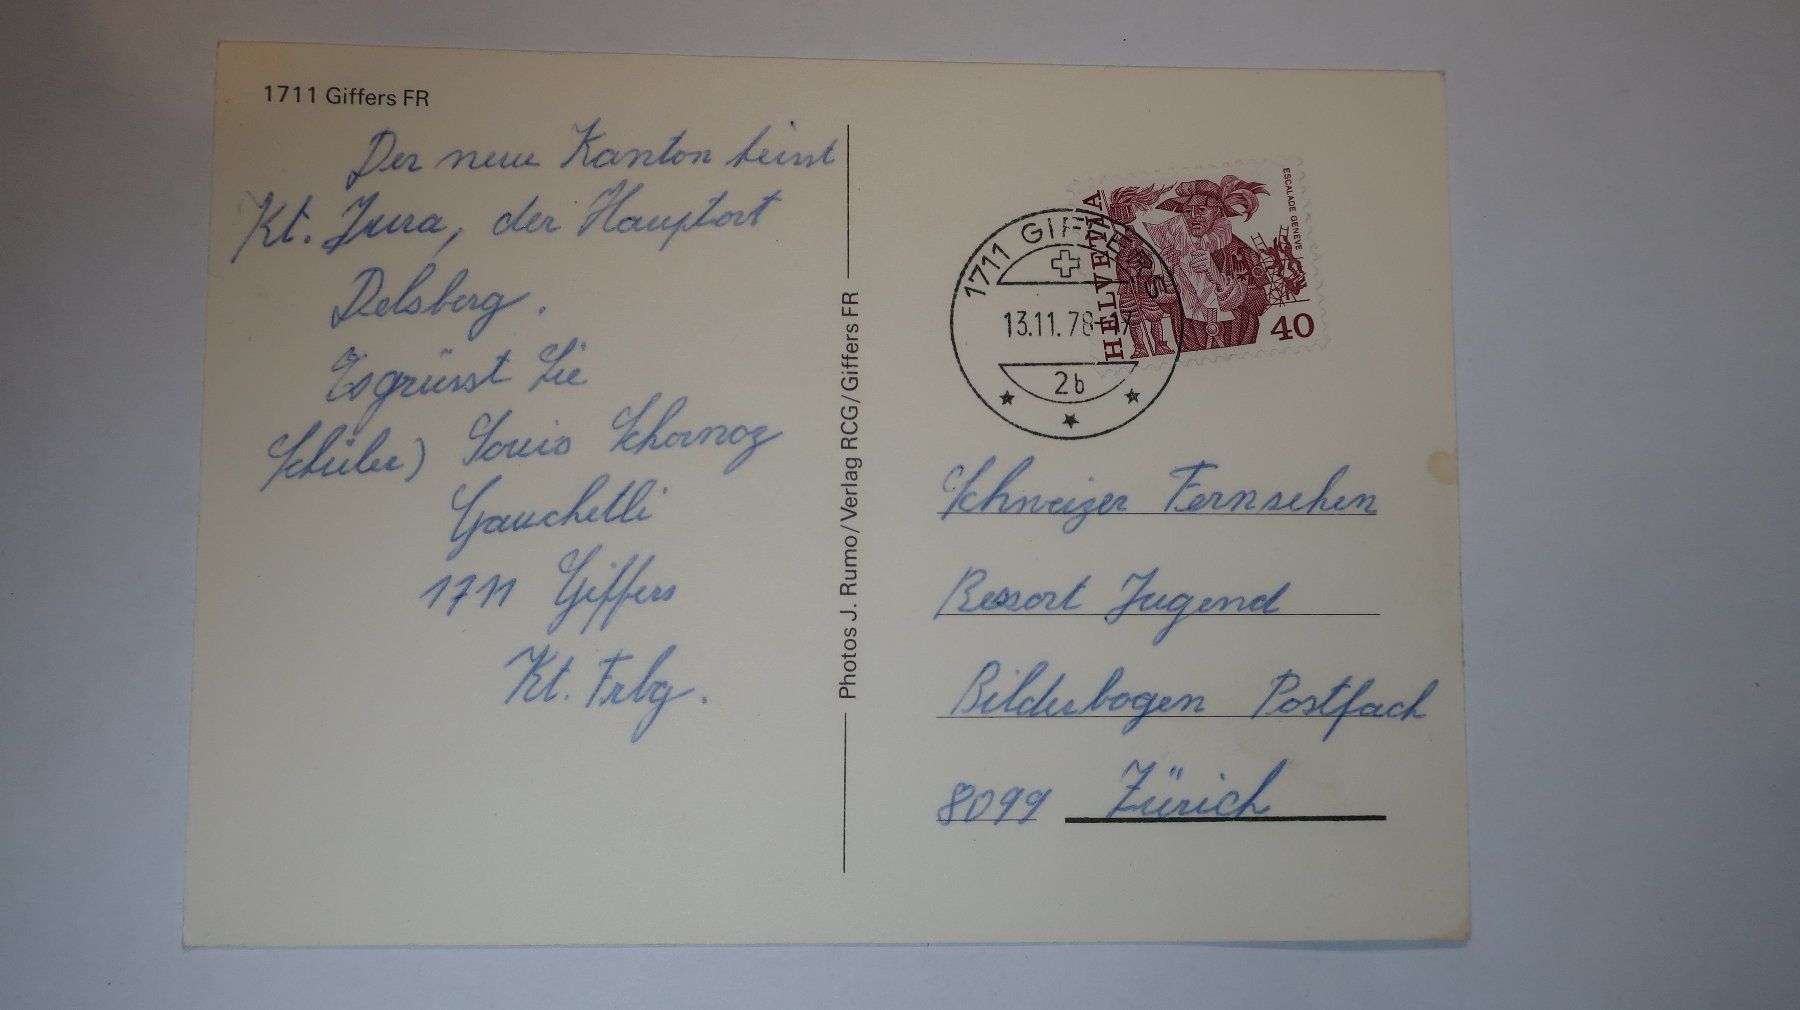 1711 Giffers FR
Der neue Kanton heisst
Kt. Jura, der Hauptort
Delsberg.
Es grüsst Sie
Schüler) Louis Schornoz
Gauchetli
1711 Giffers
Kt. Frbg.
Photos J. Rumo/Verlag RCG/Giffers FR
1711 GIFFERS
13.11.78-17
2b
HELVETIA
ESCALADE GENÈVE
40
Schweizer Fernsehen
Ressort Jugend
Bilderbogen Postfach
8099 Zürich